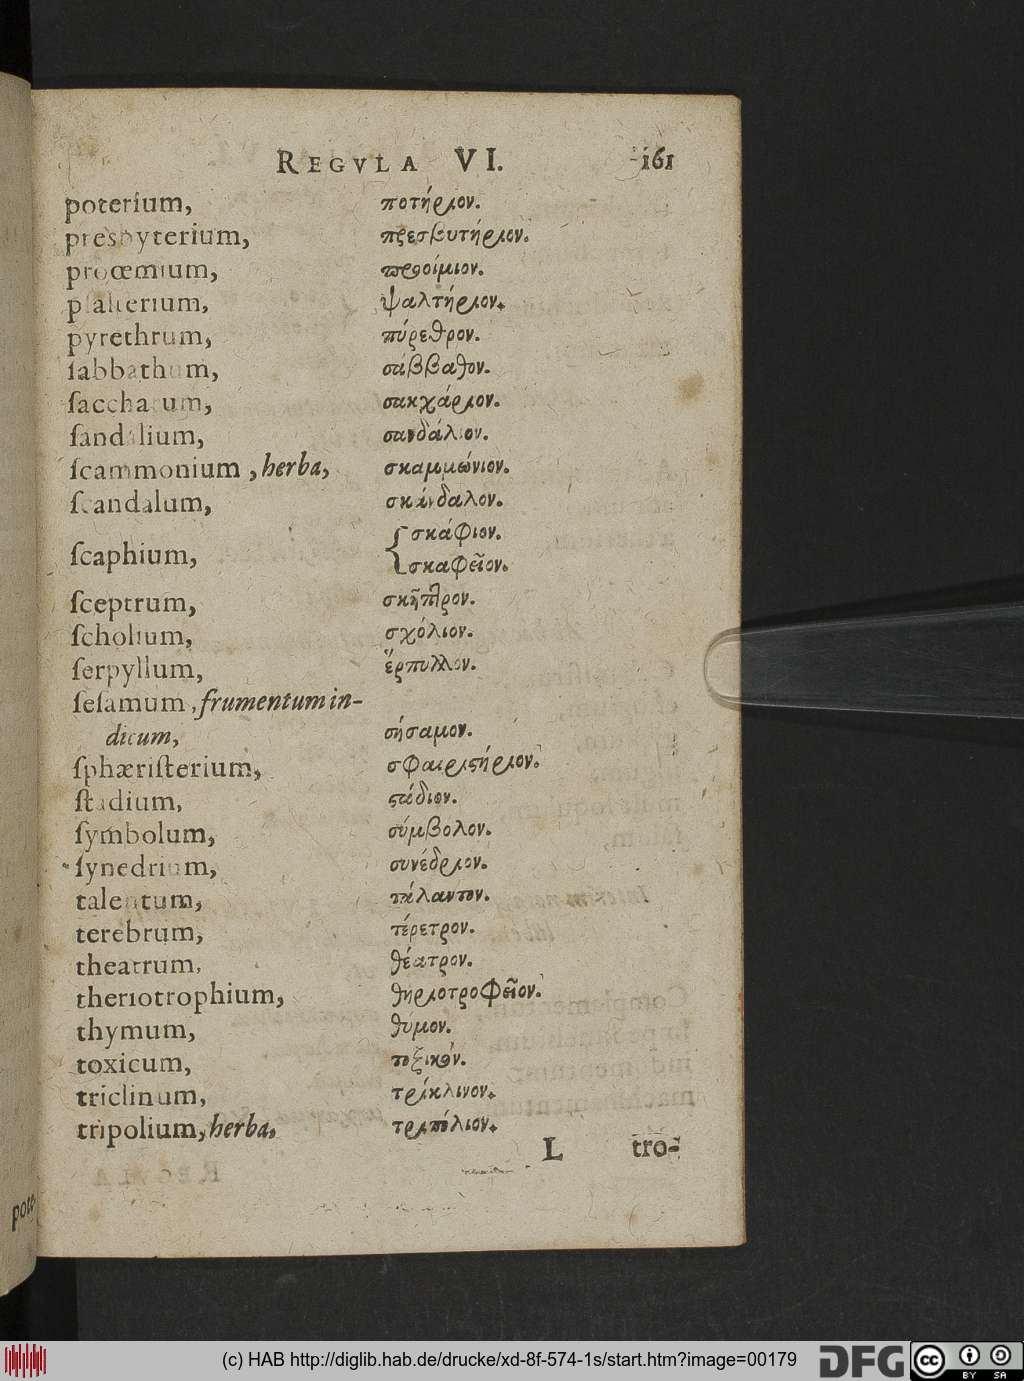 REGVLA VI. 161
poterium, ποτήριον.
presbyterium, πρεσβυτήριον.
prooemium, προοίμιον.
pſalterium, ψαλτήριον.
pyrethrum, πύρεθρον.
ſabbathum, σάββαθον.
ſaccharum, σακχάριον.
ſandalium, σανδάλιον.
ſcammonium, herba, σκαμμώνιον.
ſcandalum, σκάνδαλον.
ſcaphium, { σκάφιον.
σκαφεῖον.
ſceptrum, σκῆπτρον.
ſcholium, σχόλιον.
ſerpyllum, ἕρπυλλον.
ſeſamum, frumentum in-
dicum, σήσαμον.
ſphæriſterium, σφαιριστήριον.
ſtadium, στάδιον.
ſymbolum, σύμβολον.
ſynedrium, συνέδριον.
talentum, τάλαντον.
terebrum, τέρετρον.
theatrum, θέατρον.
theriotrophium, θηριοτροφεῖον.
thymum, θύμον.
toxicum, τοξικόν.
triclinum, τρίκλινον.
tripolium, herba, τριπόλιον.
L tro-
pote-
(c) HAB http://diglib.hab.de/drucke/xd-8f-574-1s/start.htm?image=00179
DFG
cc BY SA